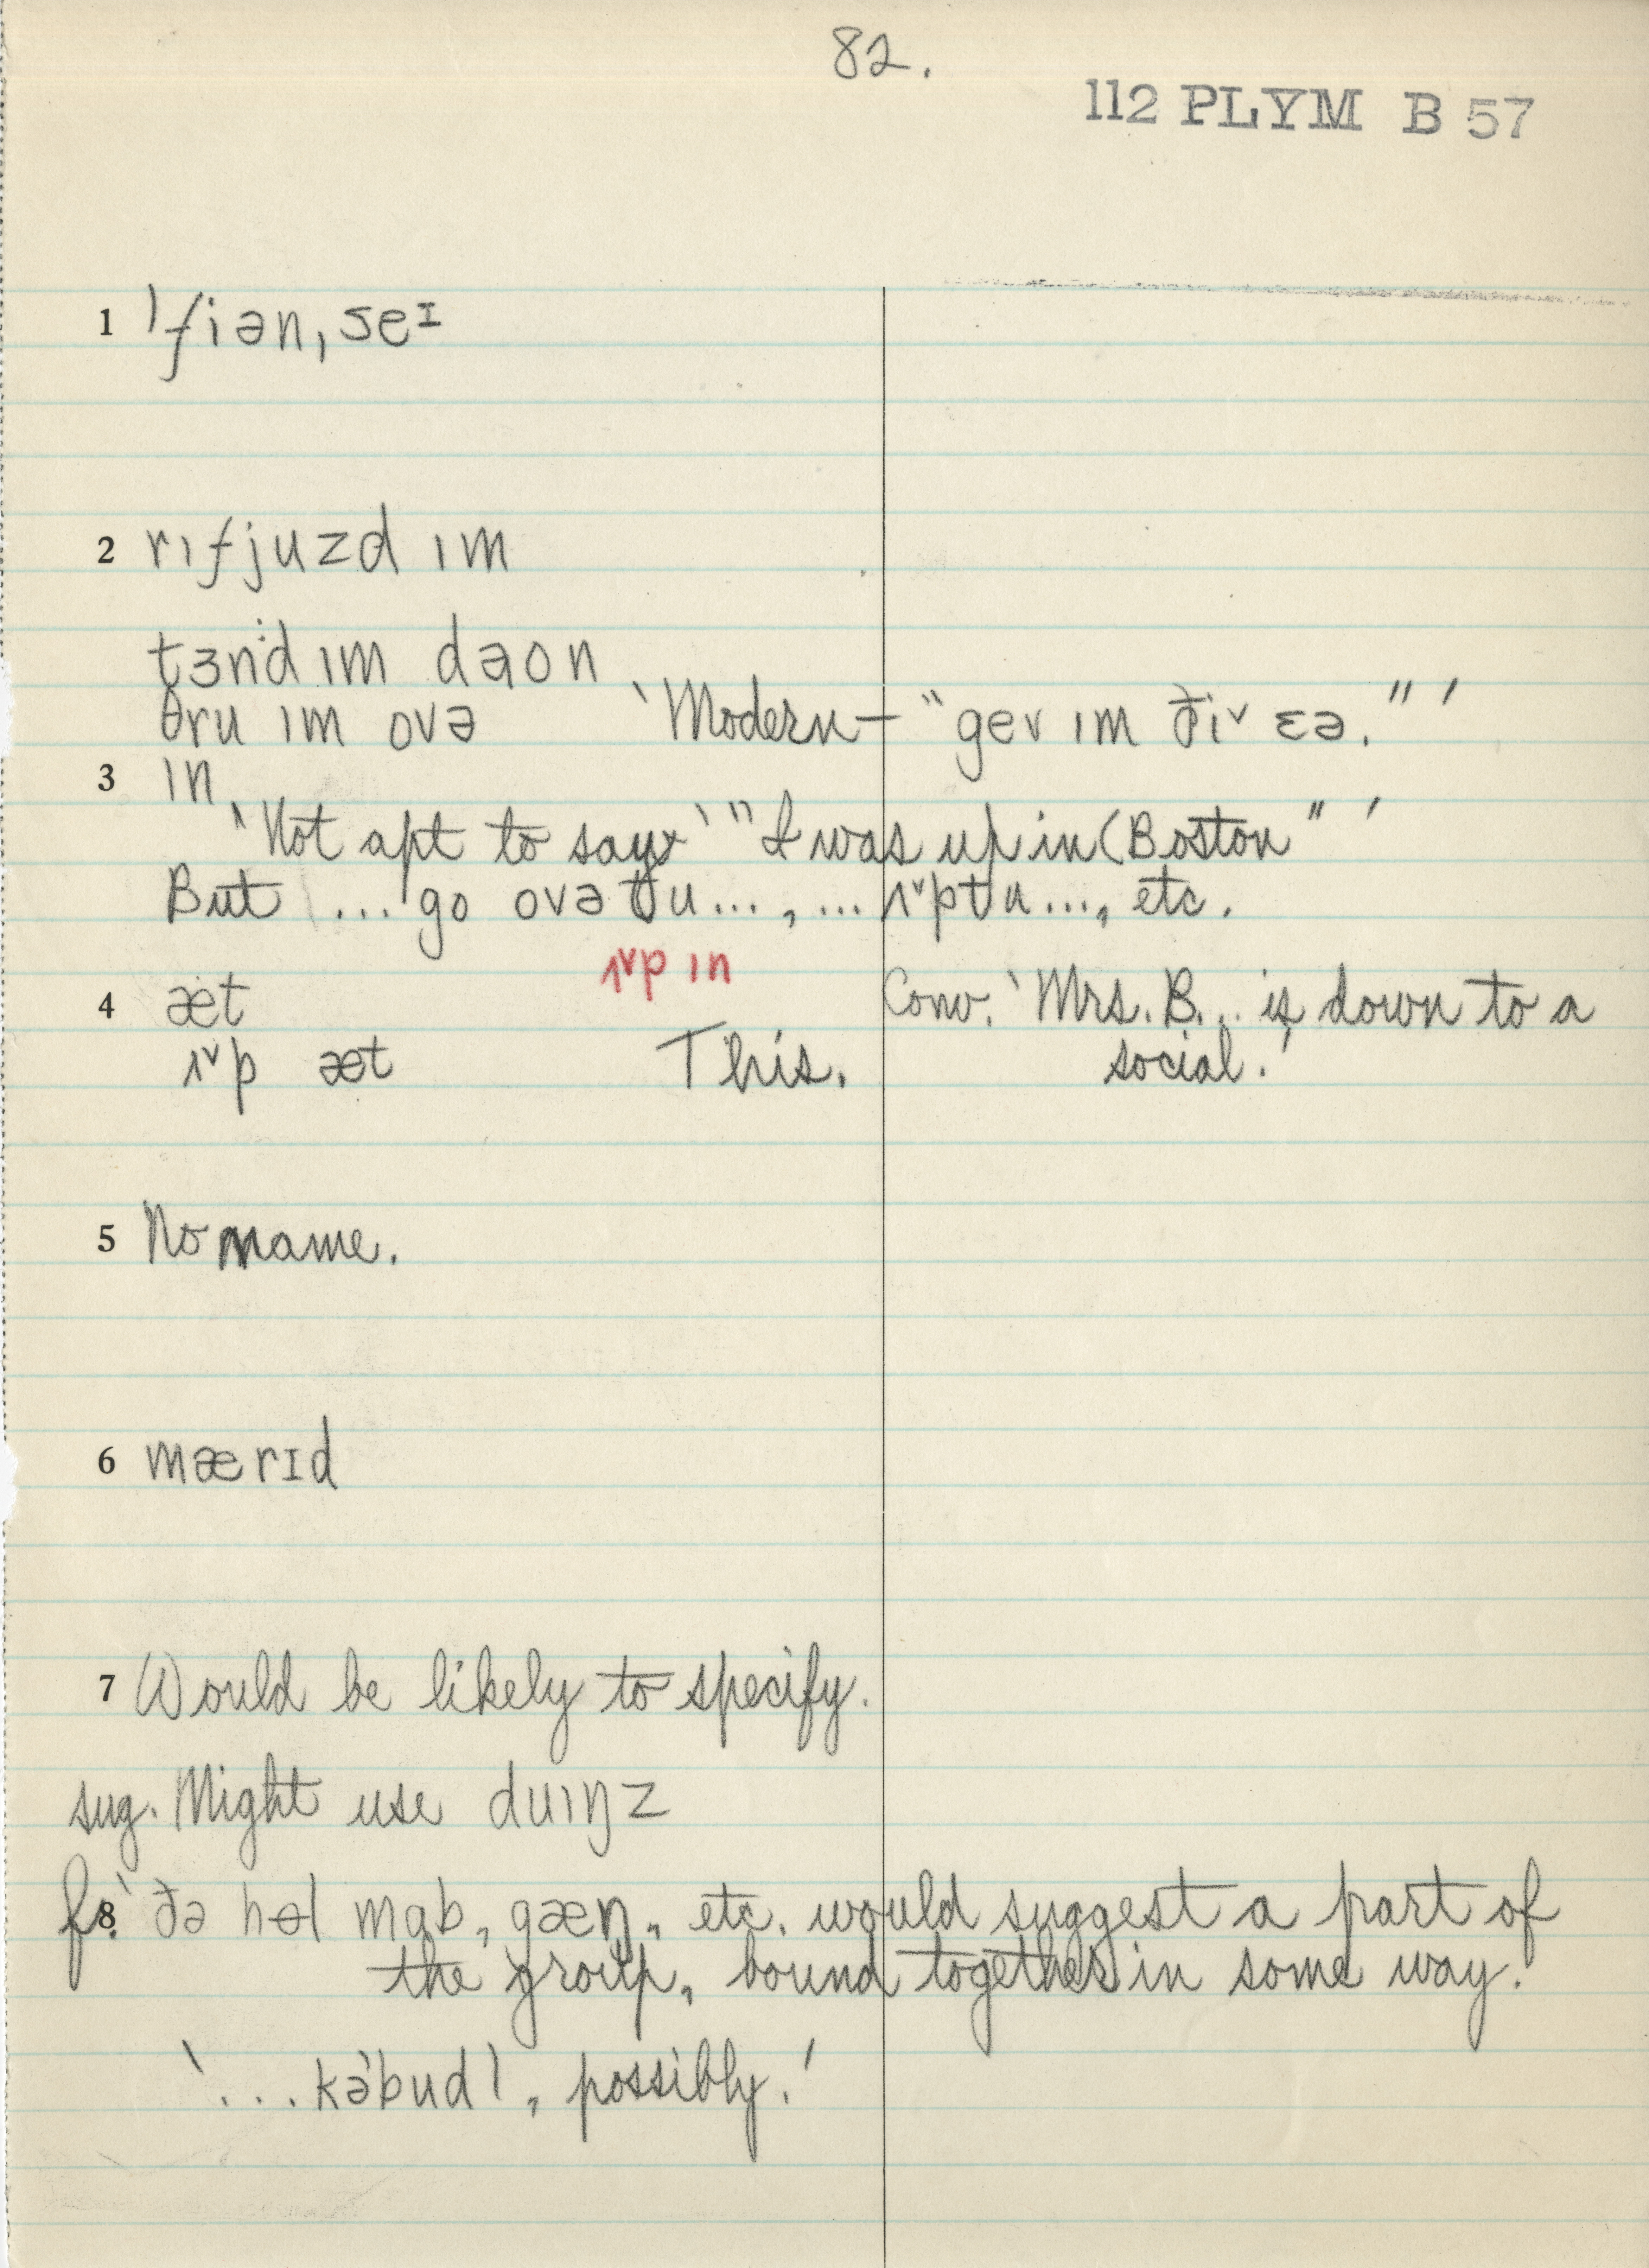 82.
112 PLYM B 57
1 ˈfiənˌseɪ
2 rɪfjuzd ɪm
tɜnd ɪm dəon
θru ɪm ovə ‛Modern — “gev ɪm ðiˇ ɛə.” ’
3 ɪn
‛Not apt to say‛ “I was up in (Boston” ’
But ... go ovə tu..., ... ʌˇp tu..., etc.
ʌˇp ɪn
4 æt Conv. ‛Mrs. B... is down to a
ʌˇp æt This. social.’
5 No name.
6 mærɪd
7 Would be likely to specify.
sug. Might use duɪŋz
8 fs. ‛ðə hɵl mɑb, gæŋ, etc. would suggest a part of
the group, bound together in some way.’
‛...kəˈbudl, possibly.’